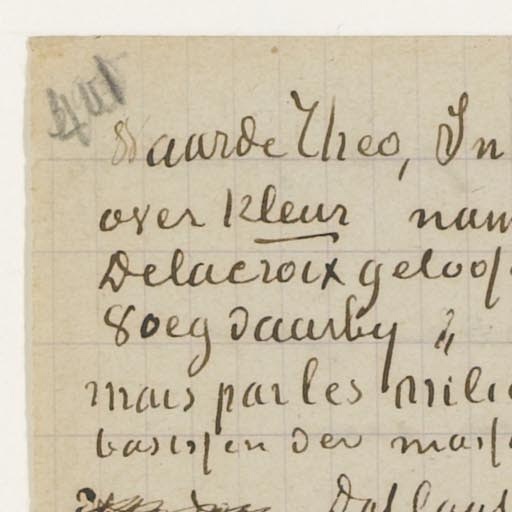 Waarde Theo, In
over kleur nam
Delacroix geloof
Voeg daarby "
mais par les milie
basissen der mass
Dat laat